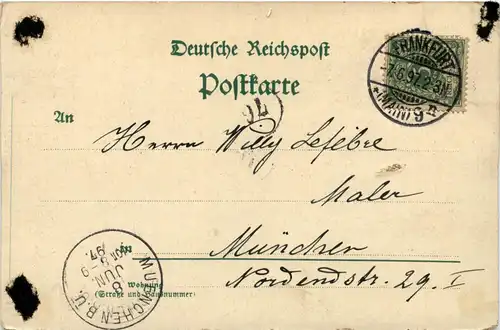 Deutsche Reichspost
Postkarte
FRANKFURT
7.6.97.2-3N.
(MAIN) 9
An
Herrn Willy Lefébre
Maler
in München
Nordendstr. 29. I
Wohnung
(Straße und Hausnummer)
MUENCHEN B.U.
8
JUN.
97.